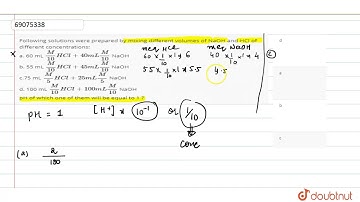 69075338
Following solutions were prepared by mixing different volumes of NaOH and HCl of different concentrations:
a. 60 mL M/10 HCl + 40mL M/10 NaOH
b. 55 mL M/10 HCl + 45mL M/10 NaOH
c.75 mL M/5 HCl + 25mL M/5 NaOH
d. 100 mL M/10 HCl + 100mL M/10 NaOH
pH of which one of them will be equal to 1 ?
meq HCl meq NaOH
60 × 1/10 × 1 = 6 40 × 1/10 × 1 = 4
55 × 1/10 × 1 = 5.5 4.5
(c)
pH = 1 [H+] = 10-1 or 1/10
conc
(a) 2/100
doubtnut